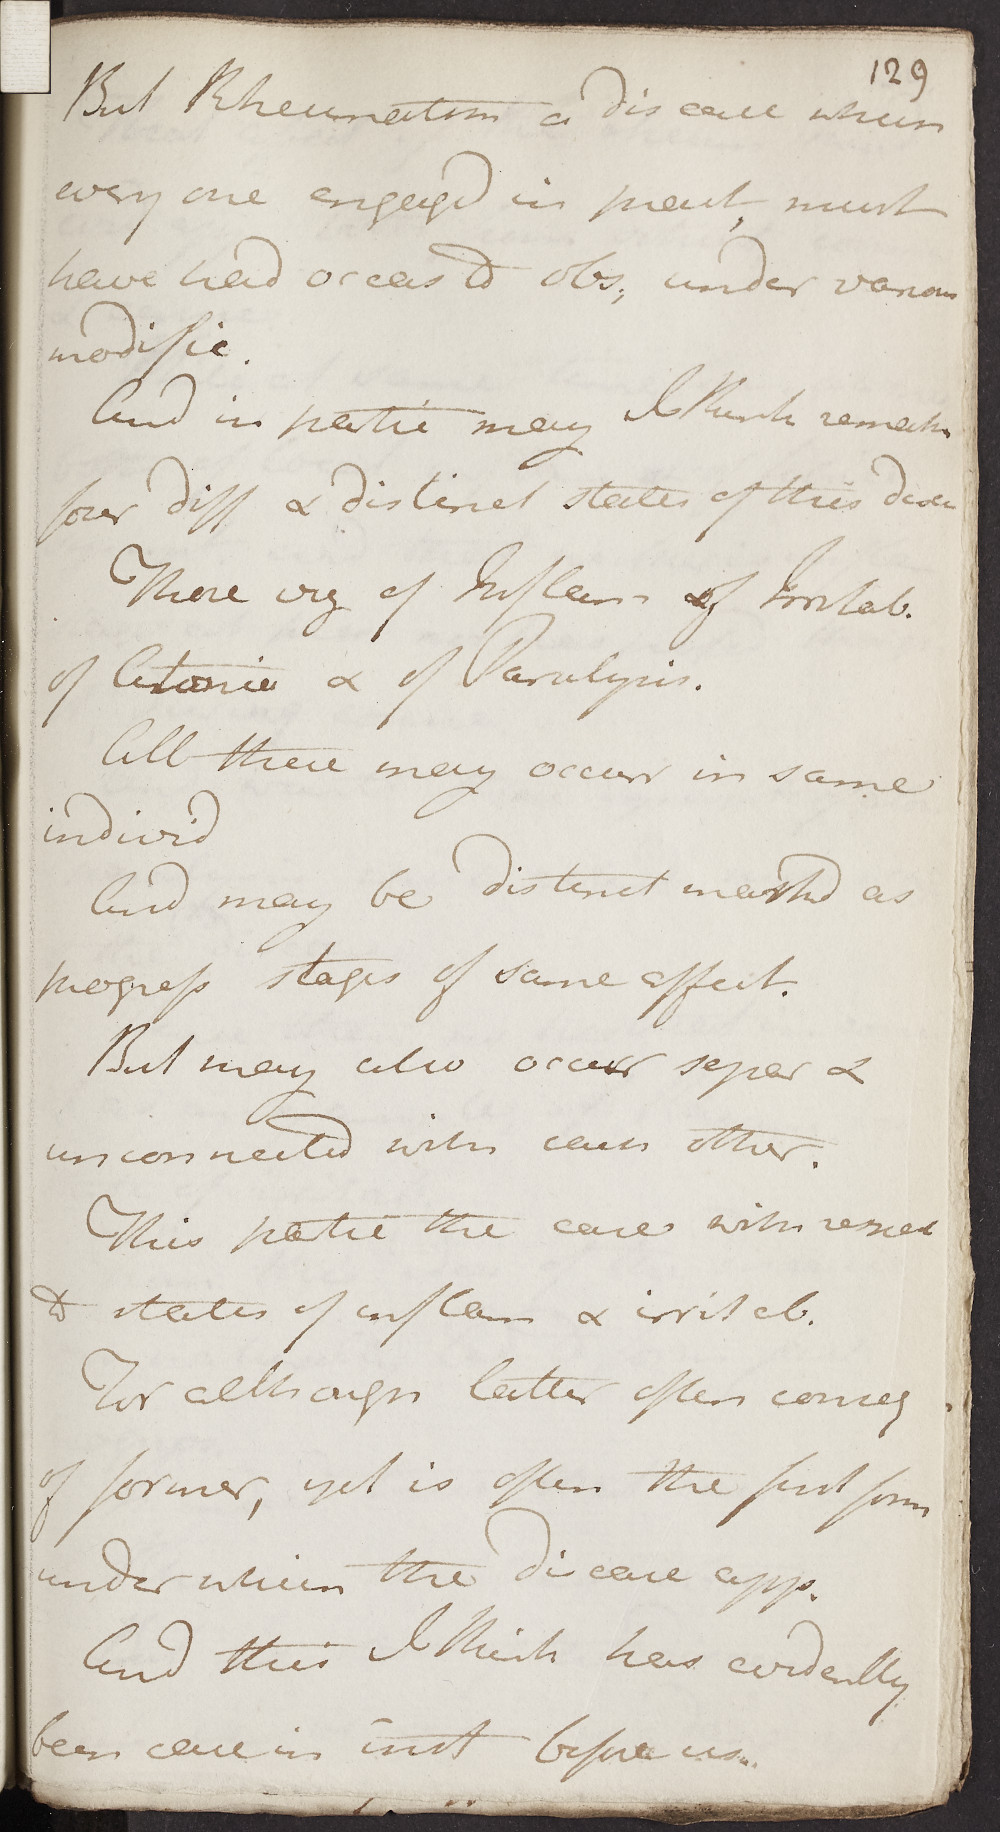 129
But Rheumatism a disease which
every one engaged in pract, must
have had occas to obs, under various
modific.
And in partic may I think remark
four diff & distinct states of this disease
Those viz of Inflam of Irritab.
of Atonia & of Paralysis.
All these may occurr in same
individ
And may be distinct markd as
progress stages of same affect.
But may also occurr separ &
unconnected with each other.
This partic the case with respect
to states of inflam & irritab.
For although latter often conseq
of former, yet is often the first form
under which the disease app.
And this I think has evidently
been case in inst before us.